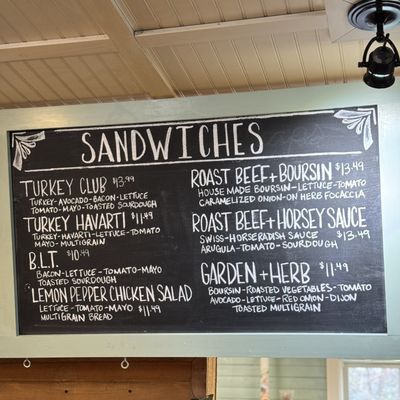 SANDWICHES
TURKEY CLUB $13.99
TURKEY-AVOCADO-BACON-LETTUCE
TOMATO-MAYO-TOASTED SOURDOUGH
TURKEY HAVARTI $11.49
TURKEY-HAVARTI-LETTUCE-TOMATO
MAYO-MULTIGRAIN
B.L.T. $10.49
BACON-LETTUCE-TOMATO-MAYO
TOASTED SOURDOUGH
LEMON PEPPER CHICKEN SALAD
LETTUCE-TOMATO-MAYO $11.49
MULTIGRAIN BREAD
ROAST BEEF+BOURSIN $13.49
HOUSE MADE BOURSIN-LETTUCE-TOMATO
CARAMELIZED ONION-ON HERB FOCACCIA
ROAST BEEF+HORSEY SAUCE
SWISS-HORSERADISH SAUCE $13.49
ARUGULA-TOMATO-SOURDOUGH
GARDEN+HERB $11.49
BOURSIN-ROASTED VEGETABLES-TOMATO
AVOCADO-LETTUCE-RED ONION-DIJON
TOASTED MULTIGRAIN